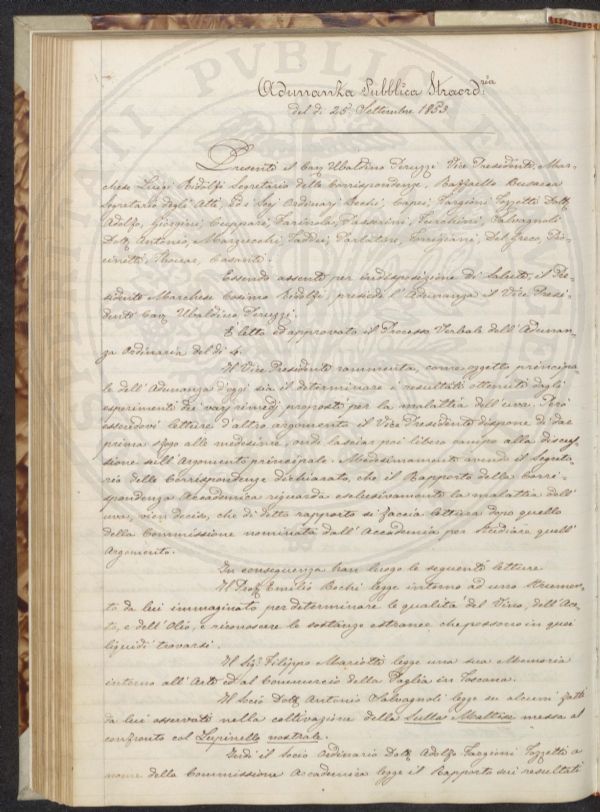 Adunanza Pubblica Straord.ria
del dì 25 Settembre 1853.
Presenti il Cav. Ubaldino Peruzzi Vice Presidente, Mar-
chese Luigi Ridolfi Segretario delle Corrispondenze, Raffaello Busacca
Segretario degli Atti, ed i Sig.i Ordinarj Bechi, Capei, Targioni Tozzetti Dott.
Adolfo, Giorgini, Cuppari, Farinola, Passerini, Salvagnoli
Dott. Antonio, Marzucchi, Taddei, Parlatore, Del Greco,
Thouar, Casanti.
Essendo assente per indisposizione di salute il Pre-
sidente Marchese Cosimo Ridolfi, presiede l'Adunanza il Vice Presi-
dente Cav. Ubaldino Peruzzi.
È letto ed approvato il Processo Verbale dell'Adunan-
za Ordinaria del dì 4.
Il Vice Presidente rammenta, come oggetto principa-
le dell'Adunanza d'oggi sia il determinare i resultati ottenuti dagli
esperimenti dei varj rimedj proposti per la malattia dell'uva. Però
essendovi letture d'altro argomento il Vice Presidente dispone di dar
prima sfogo alle medesime, onde lasciar poi libero campo alla discus-
sione sull'Argomento principale. Medesimamente avendo il Segreta-
rio delle Corrispondenze dichiarato, che il Rapporto della Corri-
spondenza Accademica riguarda esclusivamente la malattia dell'
uva, vien deciso, che di detto rapporto si faccia lettura dopo quello
della Commissione nominata dall'Accademia per studiare quell'
Argomento.
In conseguenza han luogo le seguenti letture
Il Prof. Emilio Bechi legge intorno ad uno Strumen-
to da lui immaginato per determinare le qualità del Vino, dell'Ace-
to, e dell'Olio, e riconoscere le sostanze estranee che possono in quei
liquidi trovarsi.
Il Sig. Filippo Mariotti legge una sua Memoria
intorno all'Arte ed al Commercio della Paglia in Toscana.
Il Socio Dott. Antonio Salvagnoli legge su alcuni fatti
da lui osservati nella coltivazione della Sulla Maltese messa al
confronto col Lupinello nostrale.
Indi il Socio Ordinario Dott. Adolfo Targioni Tozzetti a
nome della Commissione Accademica legge il Rapporto sui resultati